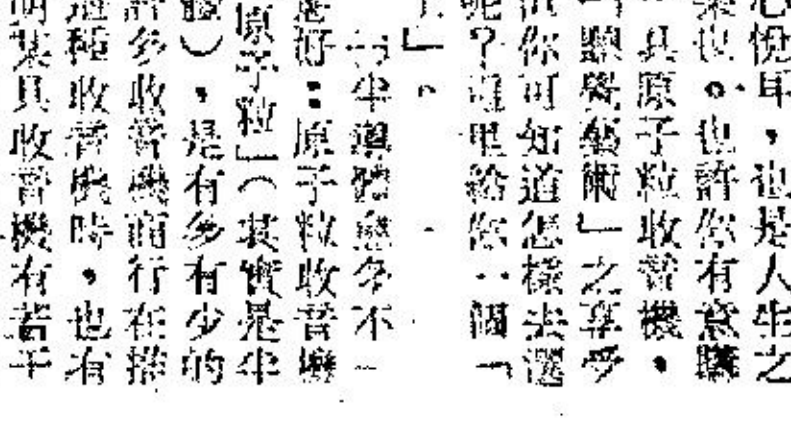 心悅耳，也是人生之
業也。也許你有意購
具原子粒收音機，
「聽覺藝術」之享受
但你可知道怎樣去選
呢？這里給你一個「
」。
半導體愈多不一
意好：原子粒收音機
原子粒」（其實是半
體），是有多有少的
許多收音機商行在推
這種收音機時，也有
明某具收音機有若干